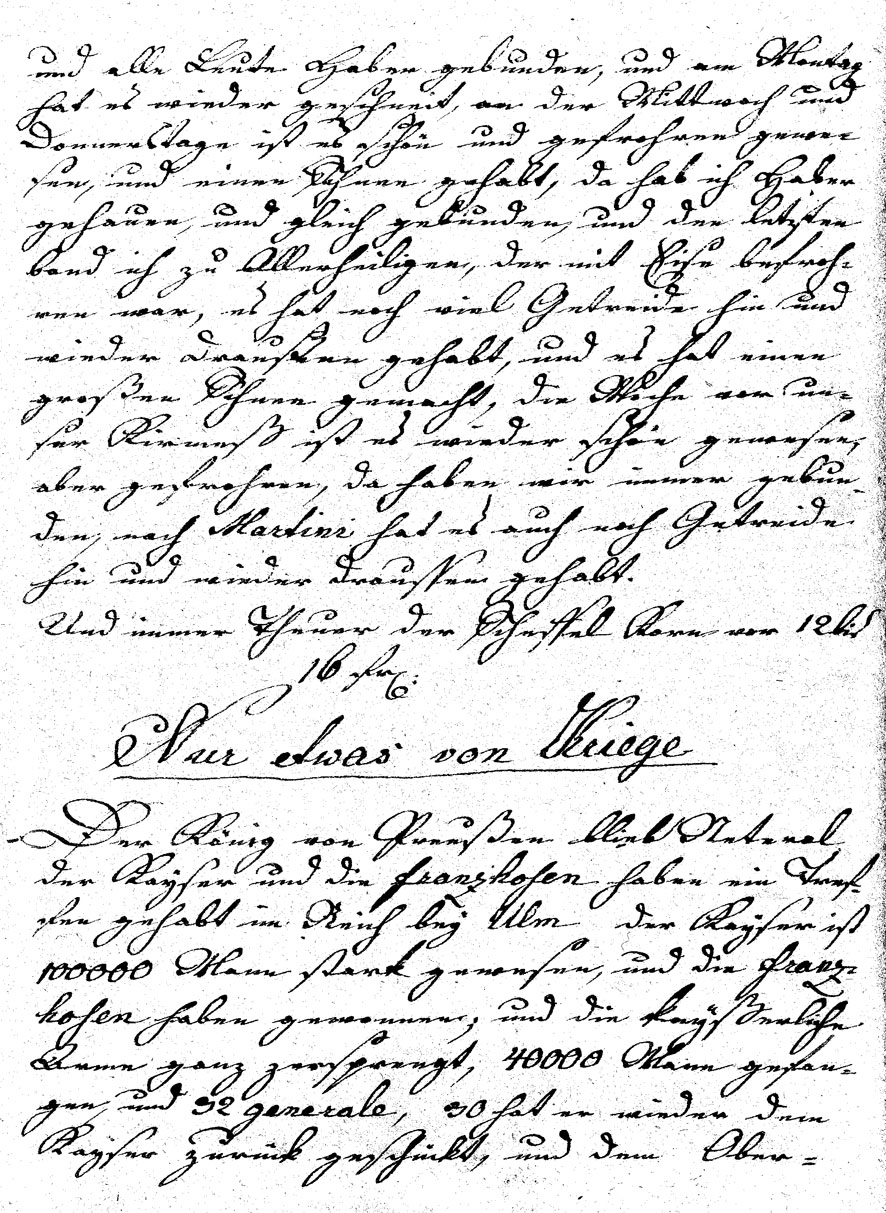 und alle Leute Haber gebunden, und am Montag
hat es wieder geschneit, an der Mittwoch und
Donnerstage ist es schön und gefrohren gewe=
sen, und einen Schnee gehabt, da hab ich Haber
gehauen, und gleich gebunden, und den letzten
band ich zu Allerheiligen, der mit Eise befroh=
ren war, es hat noch viel Getreide hin und
wieder draußen gehabt, und es hat einen
großen Schnee gemacht, die Woche vor un=
ser Kirmeß ist es wieder schön gewesen,
aber gefrohren, da haben wir immer gebun
den, nach Martini hat es auch noch Getreide
hin und wieder draussen gehabt.
Und immer Theuer der Scheffel Korn vor 12 bis
16
Nur etwas von Kriege
Der König von Preußen blieb Neteral
der Kayser und die franzhosen haben ein Tref=
fen gehabt im Reich bey Ulm der Kayser ist
100000 Mann stark gewesen, und die franz=
hosen haben gewonnen, und die kayßerliche
Arme ganz zersprengt, 40000 Mann gefan=
gen, und 32 generale, 30 hat er wieder dem
Kayser zurück geschückt, und dem Ober=